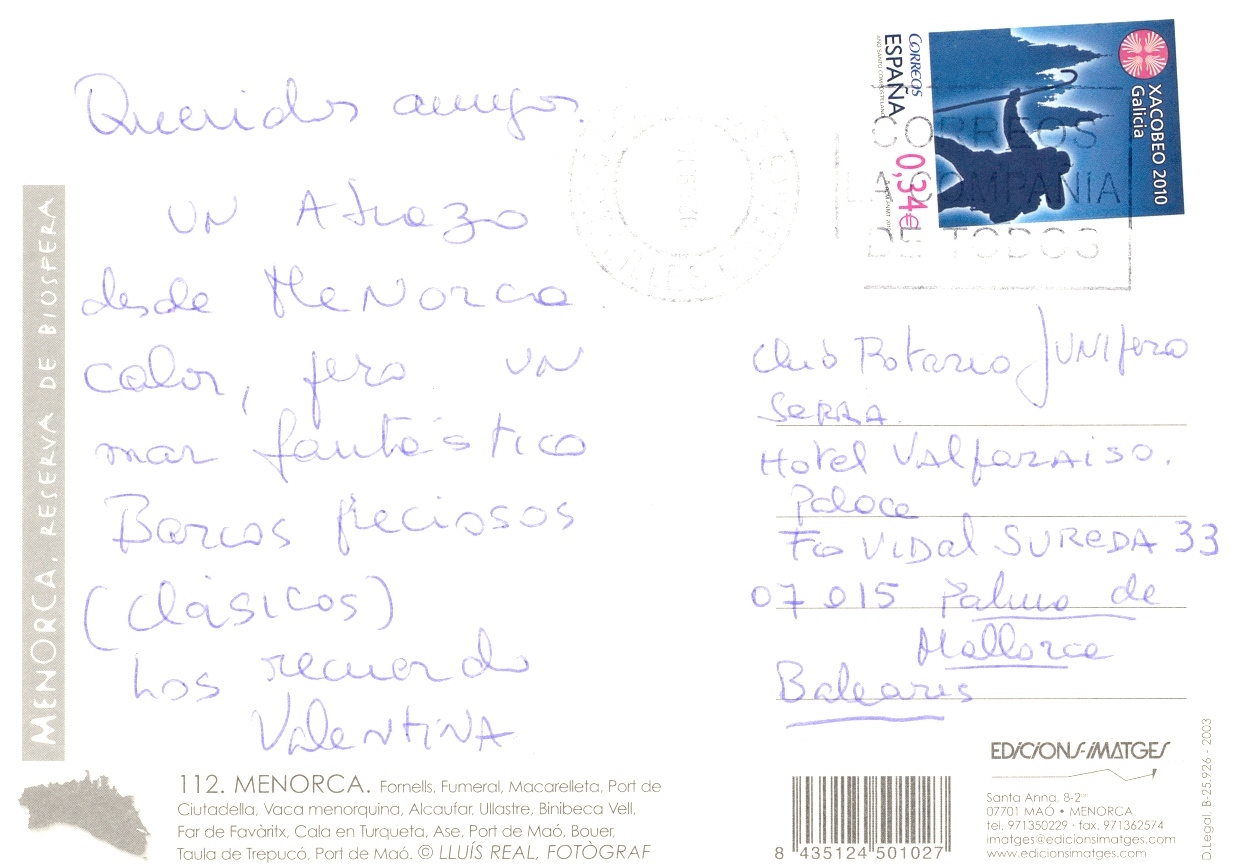 Queridos amigos.
UN Abrazo
desde MeNorca.
calor, pero UN
mar fantástico
Barcos preciosos
(clásicos)
Los recuerdo
ValentiNA
MENORCA, RESERVA DE BIOSFERA
112. MENORCA. Fornells, Fumeral, Macarelleta, Port de
Ciutadella, Vaca menorquina, Alcaufar, Ullastre, Binibeca Vell,
Far de Favàritx, Cala en Turqueta, Ase, Port de Maó, Bouer,
Taula de Trepucó, Port de Maó. © LLUÍS REAL, FOTÒGRAF
CORREOS
ESPAÑA
0,34€
XACOBEO 2010
Galicia
CORREOS
LA COMPAÑIA
DE TODOS
Club Rotario JUNIpero
SERRA.
Hotel VALparAiso.
Palace
Fco VIDal SUREDA 33
07015 Palma de
Mallorca
Baleares
EDICIONS-IMATGES
Santa Anna, 8-2on
07701 MAÓ • MENORCA
tel. 971350229 · fax. 971362574
imatges@edicionsimatges.com
www.edicionsimatges.com
8 435124 501027
D.Legal. B-25.926 - 2003